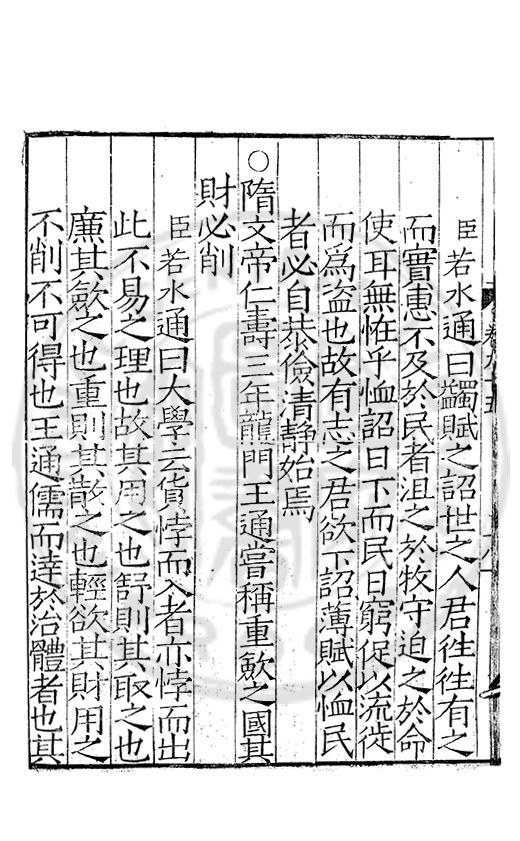 臣若水通曰蠲賦之詔世之人君徃徃有之
而實惠不及於民者沮之於牧守迫之於命
使耳無恠乎恤詔日下而民日窮促以流徙
而為盗也故有志之君欲下詔薄賦以恤民
者必自恭儉清静始焉
○隋文帝仁壽三年龍門王通嘗稱重歛之國其
財必削
臣若水通曰大學云貨悖而入者亦悖而出
此不易之理也故其用之也舒則其取之也
廉其歛之也重則其散之也輕欲其財用之
不削不可得也王通儒而逹於治體者也其